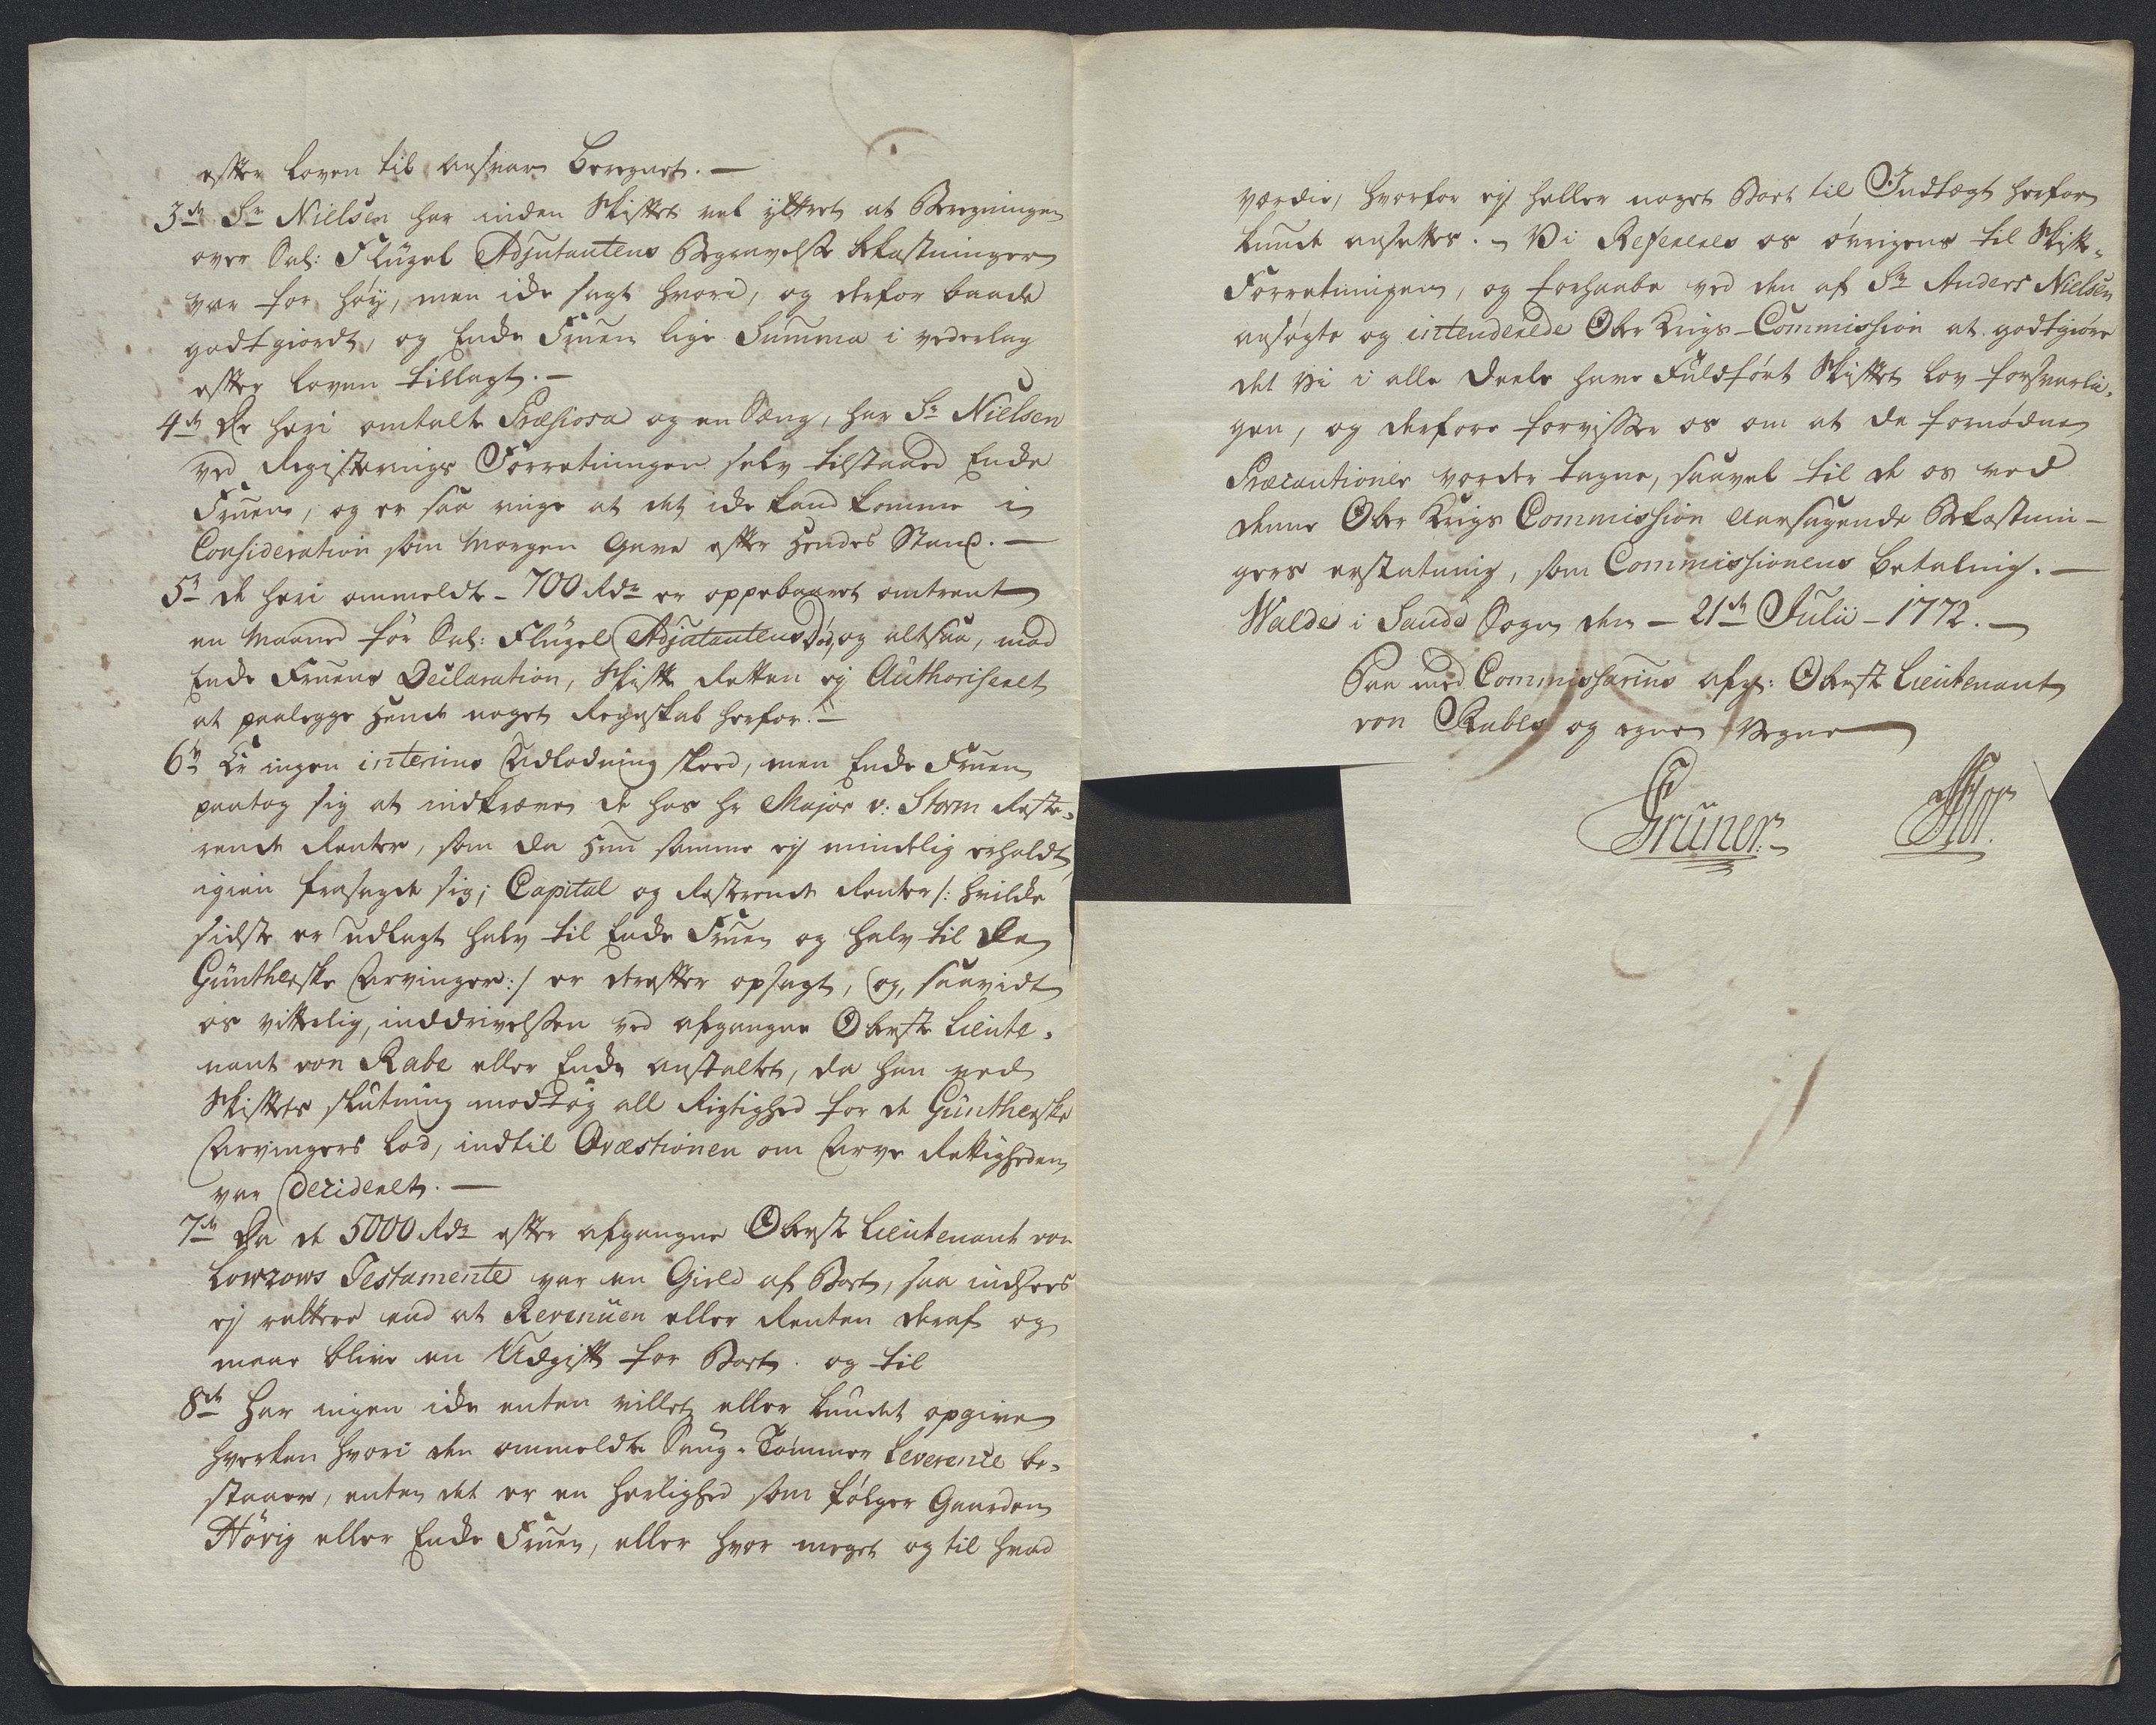 efter Loven til ansvar beregnet. —
3die Sr Nielsen har inden Skiftet vel yttret at Beregningen
over Sal: Flügel Adjutantens Begravelse bekostninger
var for høy, men icke sagt hvori, og derfor baade
godtgiordt, og Encke Fruen lige Summa i vederlag
efter Loven tillagt. —
4de De heri omtalte Præsiosa og en Seng, har Sr Nielsen
ved Registerings Forretningen selv tilstaaed Encke
Fruen, og er saa ringe at det icke kand komme i
Consideration som Morgen Gave efter Hendes Stand. —
5te de heri ommeldte – 700 Rdr er oppebaaret omtrent
en Maaned før Sal: Flügel Adjutantens Død, og altsaa, mod
Encke Fruens Declaration, Skifte Retten ey Authoriseret
at paalegge Hende noget Regnskab herfor. —
6te Er ingen interims Udlodning skeed, men Encke Fruen
paatog sig at indkræve de hos Hr Major v: Storm Reste-
rende Renter, som da Hun samme ey mindelig erholdt,
igien frasagde sig; Capital og Resterende Renter /: hvilcke
sidste er udlagt halv til Encke Fruen og halv til De
Güntherske Arvinger :/ er derefter opsagt, og, saavidt
os vitterlig, inddrivelsen ved afgangne Oberste Lieute-
nant von Rabe eller Encke anstaltet, da han ved
Skiftets slutning modtog all Rigtighed for de Güntherske
Arvingers Lod, indtil Qvæstionen om Arve Rettigheden
var Decideret. —
7de Da de 5000 Rdr efter afgangne Oberst Lieutenant von
Lowzows Testamente var en Gield af Boet, saa indsees
ey rettere end at Revenüen eller Renten deraf og
maae blive en Udgift for Boet. og til
8de Har ingen icke enten villet eller kundet opgive
hverken hvori den ommeldte Saug-Tømmer Leverence be-
staaer, enten det er en Herlighed som følger Gaarden
Hörig eller Encke Fruen, eller hvor meget og til hvad
værdie, hvorfor ey heller noget Boet til Indtægt herfor
kunde ansettes. – Vi Refereres os øvrigens til Skifte-
Forretningen, og forhaabe ved den af Sr Anders Nielsen
ansøgte og intenderede Ober Krigs-Commission at godtgiøre
det Vi i alle Deele have Fuldført Skiftet Lov forsvarli-
gen, og derfore forvisser os om at de fornødne
Præcautioner vorder tagne, saavel til de os ved
denne Ober Krigs Commission Aarsagende Bekostnin-
gers erstatning, som Commissionens betaling. —
Walde i Lands Sogn den – 21de Julii – 1772. —
Paa med Commissarius afg: Oberste Lieutenant
von Rabes og egne Vegne
Grüner. Flor.